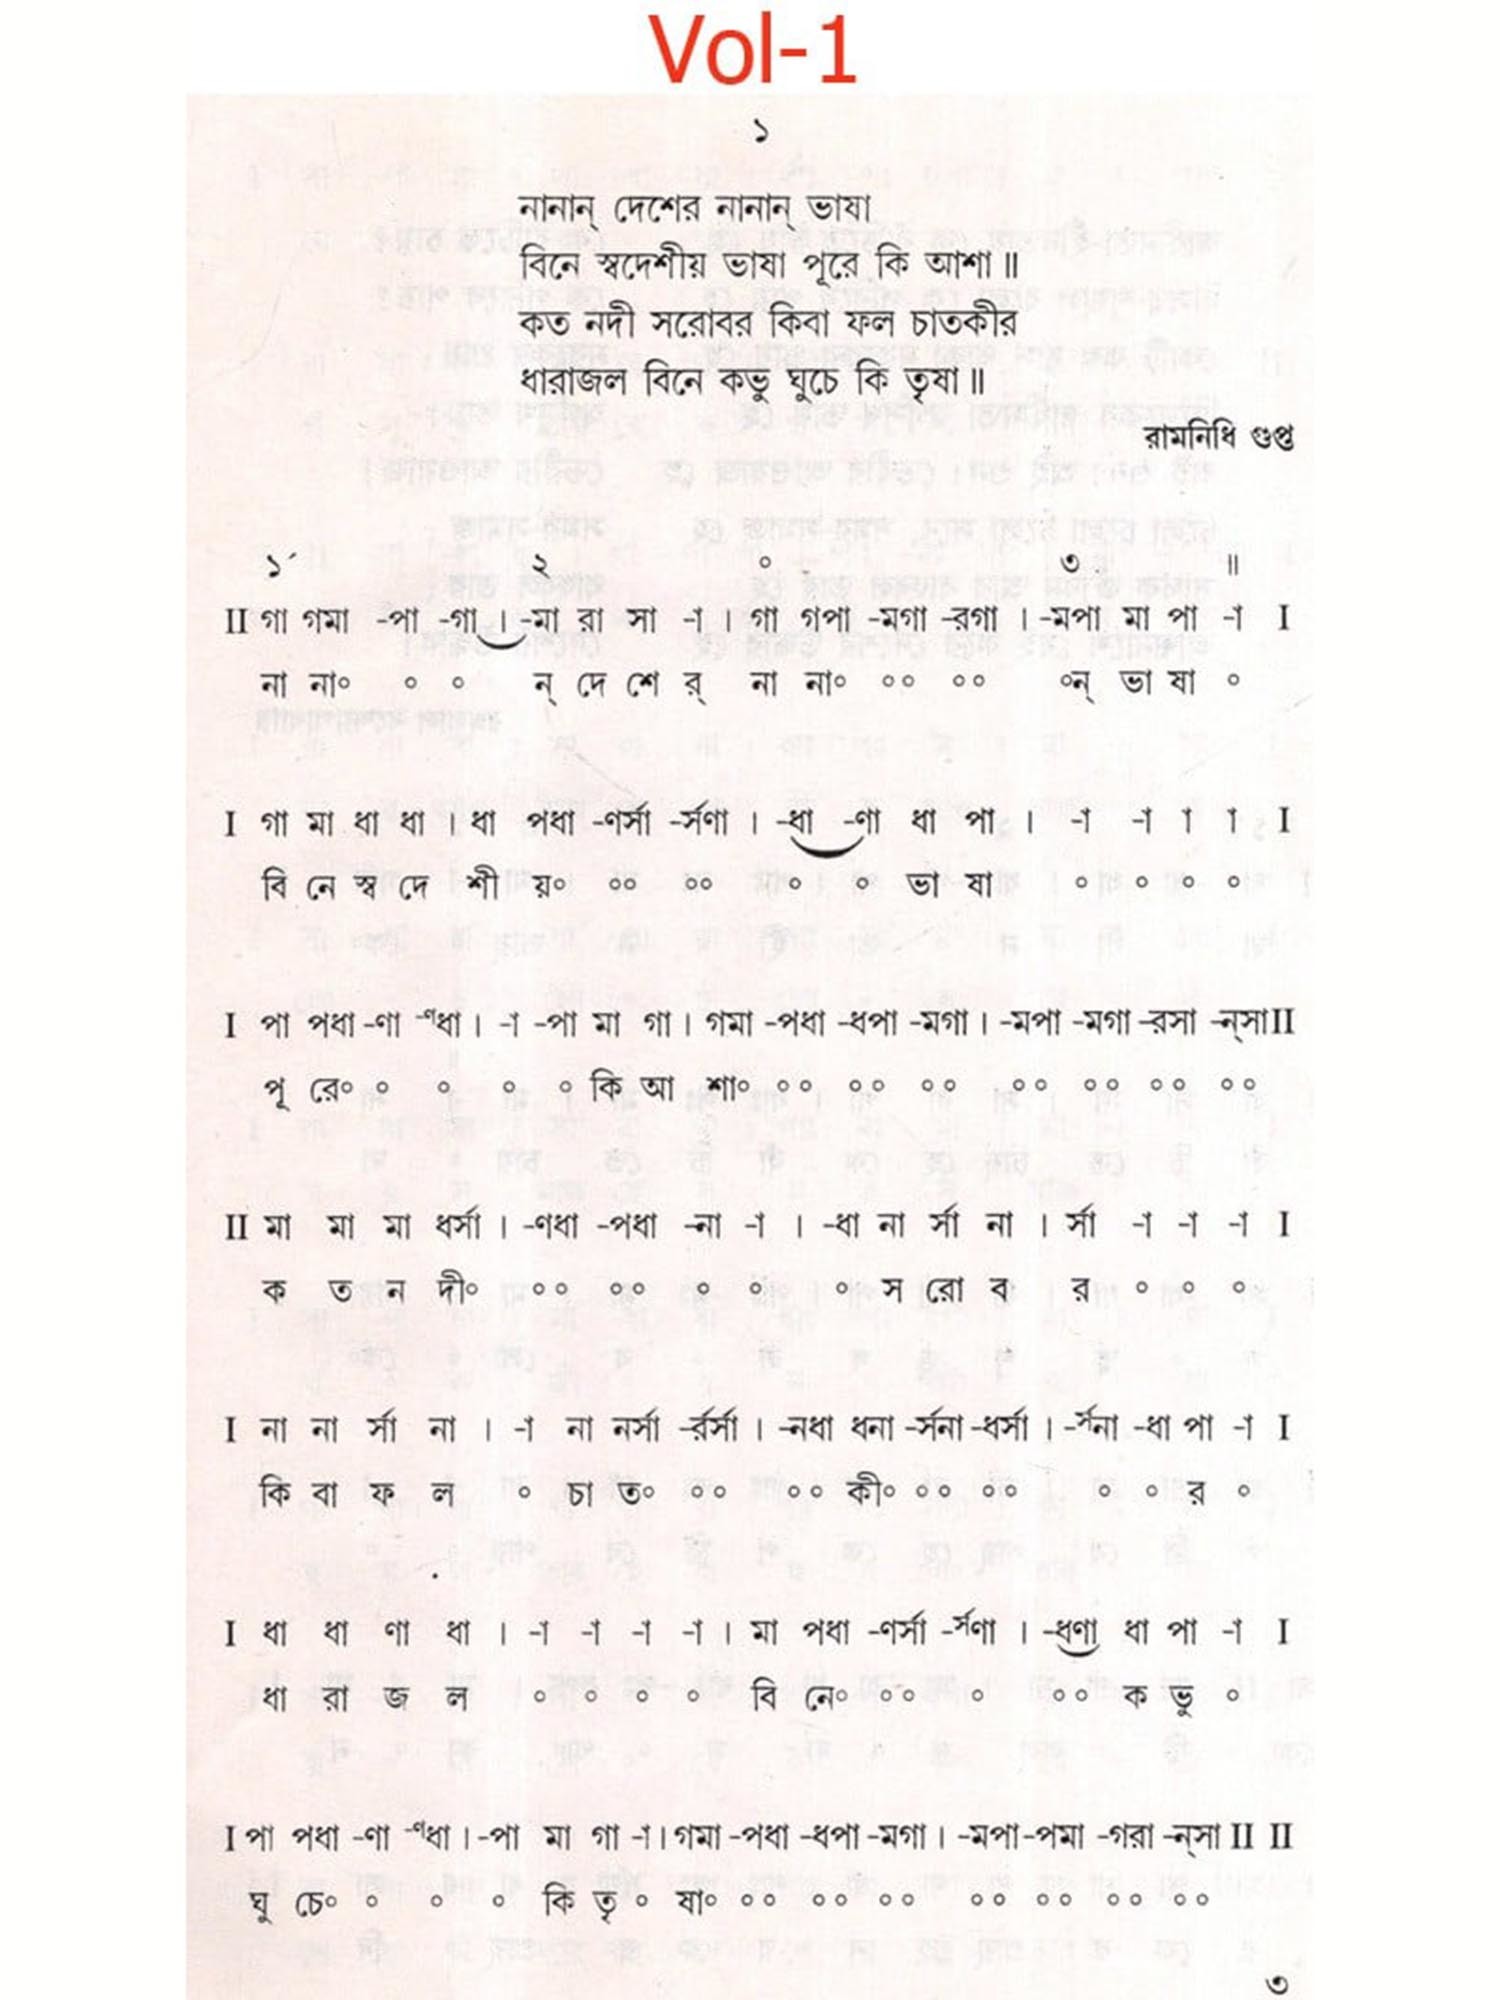 Vol-1
১
নানান্ দেশের নানান্ ভাষা
বিনে স্বদেশীয় ভাষা পূরে কি আশা॥
কত নদী সরোবর কিবা ফল চাতকীর
ধারাজল বিনে কভু ঘুচে কি তৃষা॥
রামনিধি গুপ্ত
১´ ২ ০ ৩ ॥
II গা গমা -পা -গা । -মা রা সা -া । গা গপা -মগা -রগা । -মপা মা পা -া I
না না০ ০ ০ ন্ দে শে র্ না না০ ০০ ০০ ০ন্ ভা ষা ০
I গা মা ধা ধা । ধা পধা -ণর্সা -র্সণা । -ধা -ণা ধা পা । -া -া া া I
বি নে স্ব দে শী য়০ ০০ ০০ ০ ০ ভা ষা ০ ০ ০ ০
I পা পধা -ণা -ণধা । -া -পা মা গা । গমা -পধা -ধপা -মগা । -মপা -মগা -রসা -ন্সা II
পূ রে০ ০ ০ ০ ০ কি আ শা০ ০০ ০০ ০০ ০০ ০০ ০০ ০০
II মা মা মা ধর্সা । -ণধা -পধা -না -া । -ধা না র্সা না । র্সা -া -া -া I
ক ত ন দী০ ০০ ০০ ০ ০ ০ স রো ব র ০ ০ ০
I না না র্সা না । -া না নর্সা -র্রর্সা । -নধা ধনা -র্সনা -ধর্সা । -র্সনা -ধা পা -া I
কি বা ফ ল ০ চা ত০ ০০ ০০ কী০ ০০ ০০ ০ ০ র ০
I ধা ধা ণা ধা । -া -া -া -া । মা পধা -ণর্সা -র্সণা । -ধণা ধা পা -া I
ধা রা জ ল ০ ০ ০ ০ বি নে০ ০০ ০ ০০ ক ভু ০
I পা পধা -ণা -ণধা । -পা মা গা -া । গমা -পধা -ধপা -মগা । -মপা -পমা -গরা -ন্সা II II
ঘু চে০ ০ ০ ০ কি তৃ ০ ষা০ ০০ ০০ ০০ ০০ ০০ ০০ ০০
৩